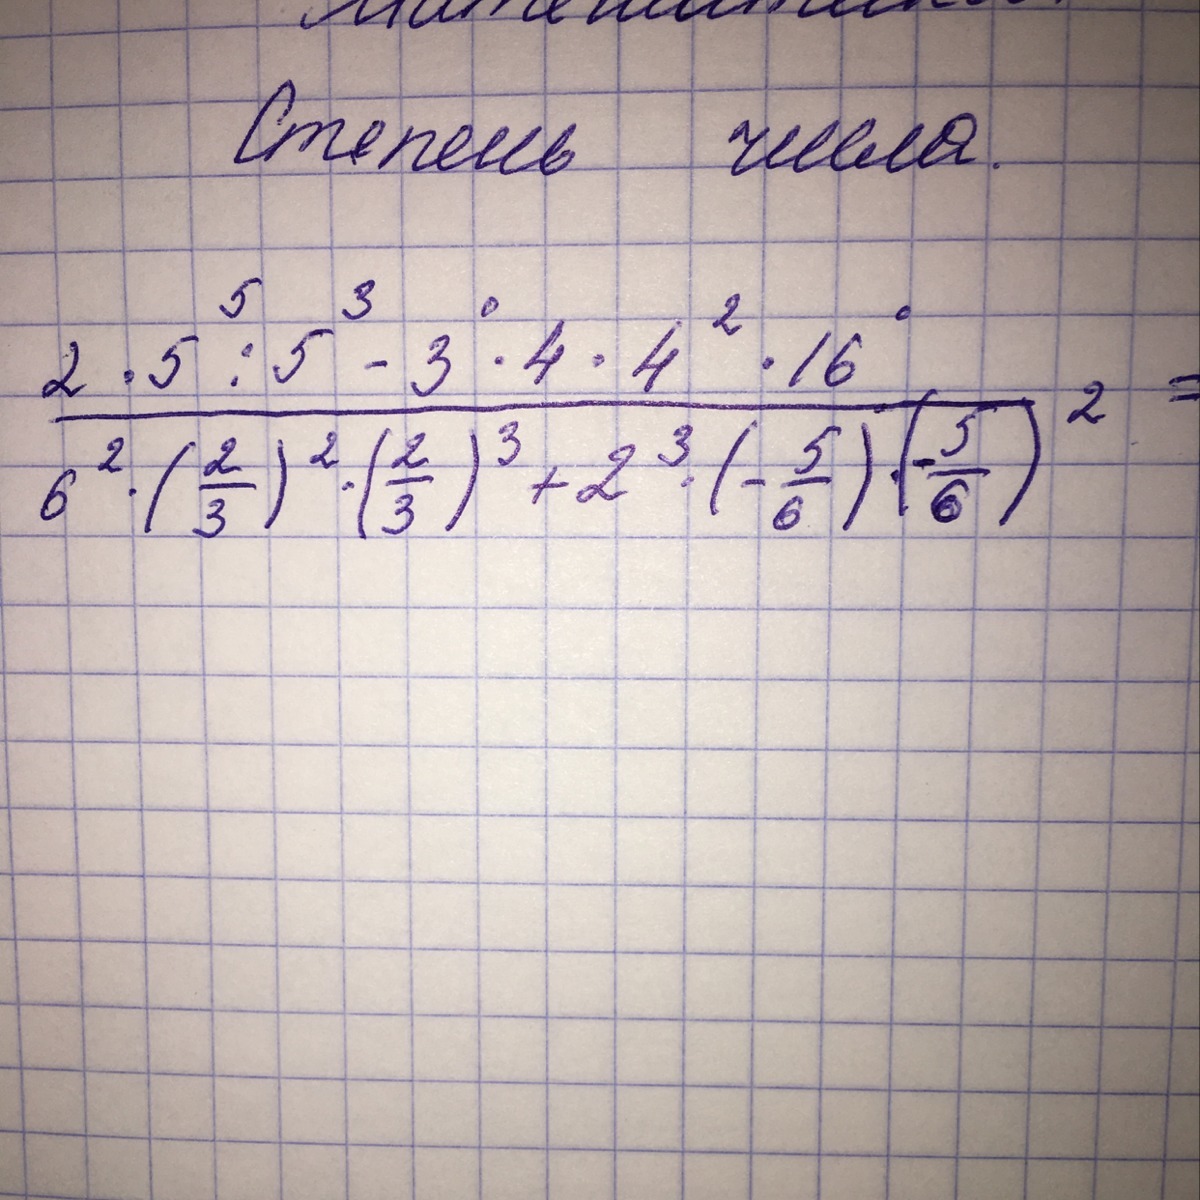 Математика.
Степень числа.
2 · 5⁵ : 5³ - 3⁰ · 4 · 4² · 16⁰
6² · (2/3)² · (2/3)³ + 2³ · (- 5/6) · (- 5/6)² =